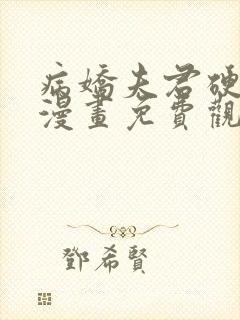 病嬌夫君硬
漫畫免費觀
鄧希賢